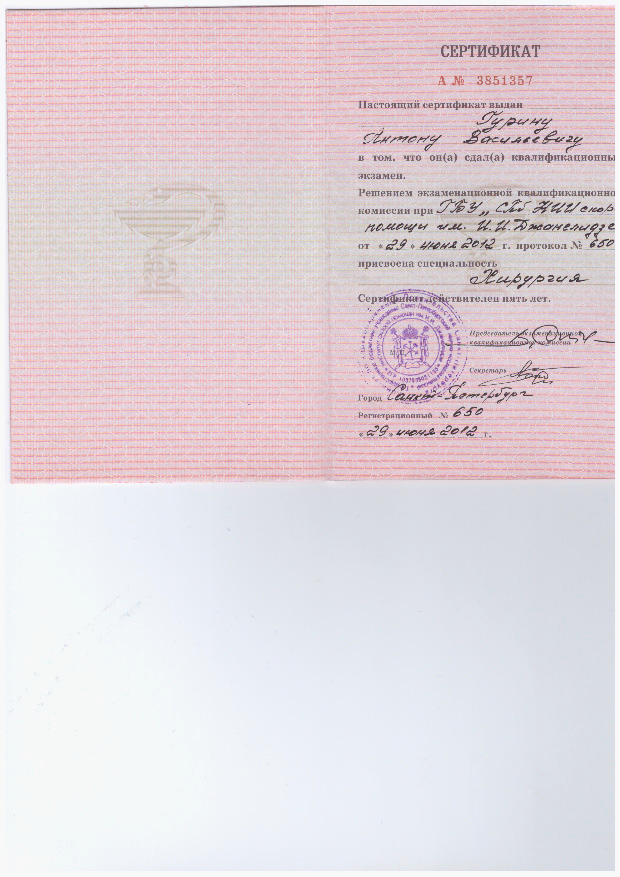 СЕРТИФИКАТ
А № 3851357
Настоящий сертификат выдан
Гурину
Антону Васильевичу
в том, что он(а) сдал(а) квалификационны
экзамен.
Решением экзаменационной квалификационно
комиссии при ГБУ „СПб НИИ скор
помощи им. И.И.Джанелидзе
от «29» июня 2012 г. протокол № 650
присвоена специальность
Хирургия
Сертификат действителен пять лет.
Председатель экзаменационной
квалификационной комиссии
М.П.
Секретарь
Город Санкт-Петербург
Регистрационный № 650
«29» июня 2012 г.